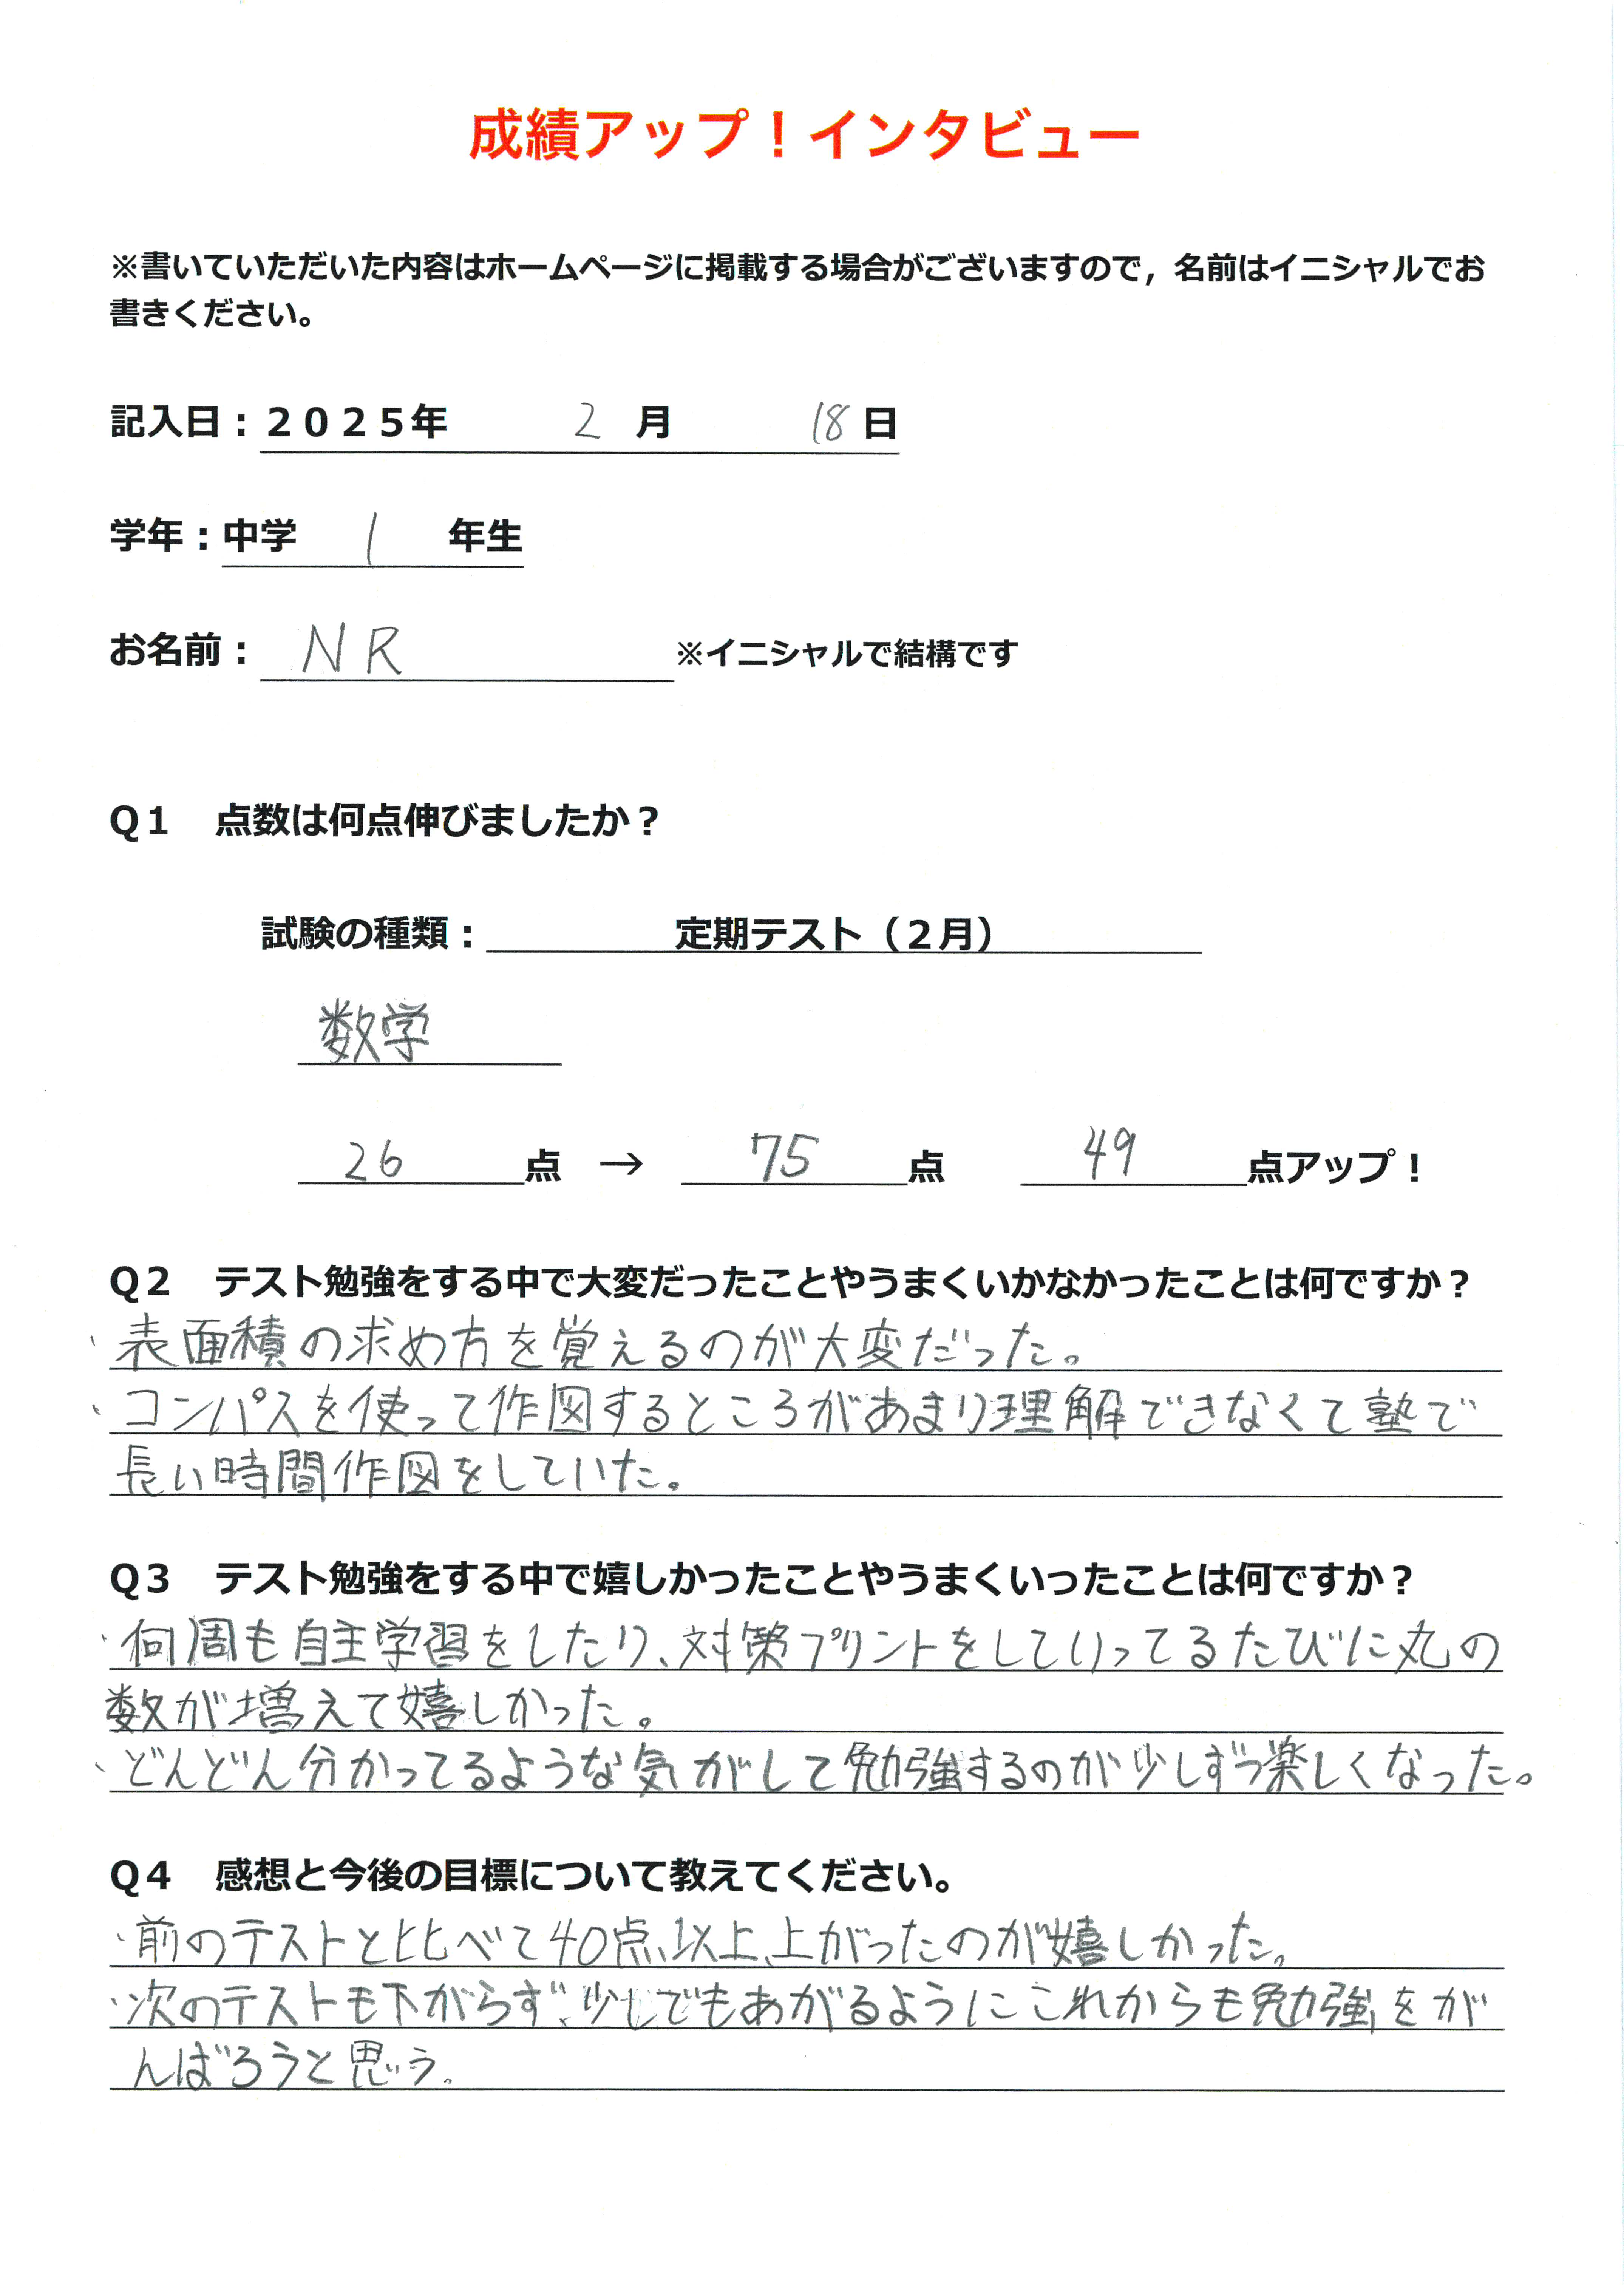 成績アップ！インタビュー
※書いていただいた内容はホームページに掲載する場合がございますので，名前はイニシャルでお
書きください。
記入日：２０２５年 2 月 18 日
学年：中学 1 年生
お名前： NR ※イニシャルで結構です
Ｑ１ 点数は何点伸びましたか？
試験の種類： 定期テスト（２月）
数学
26 点 → 75 点 49 点アップ！
Ｑ２ テスト勉強をする中で大変だったことやうまくいかなかったことは何ですか？
・表面積の求め方を覚えるのが大変だった。
・コンパスを使って作図するところがあまり理解できなくて塾で
長い時間作図をしていた。
Ｑ３ テスト勉強をする中で嬉しかったことやうまくいったことは何ですか？
・何周も自主学習をしたり、対策プリントをしていってるたびに丸の
数が増えて嬉しかった。
・どんどん分かってるような気がして勉強するのが少しずつ楽しくなった。
Ｑ４ 感想と今後の目標について教えてください。
・前のテストと比べて40点以上、上がったのが嬉しかった。
・次のテストも下がらず、少しでもあがるようにこれからも勉強をが
んばろうと思う。